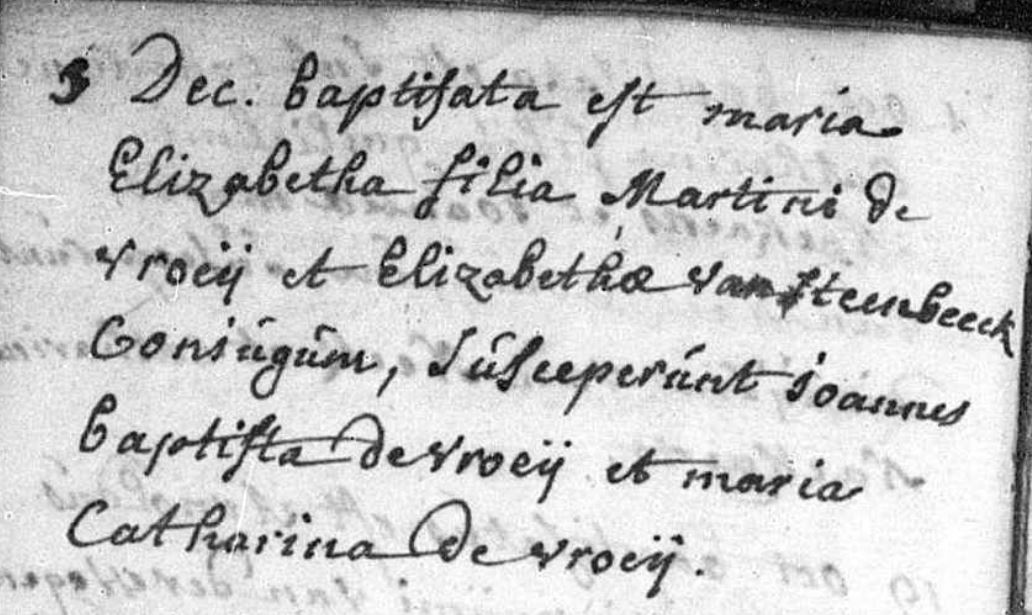 3 Dec. baptisata est maria
Elizabetha filia Martini de
vroeij et Elizabethæ van steenbeeck
Coniugum, susceperunt ioannes
baptista de vroeij et maria
Catharina de vroeij.